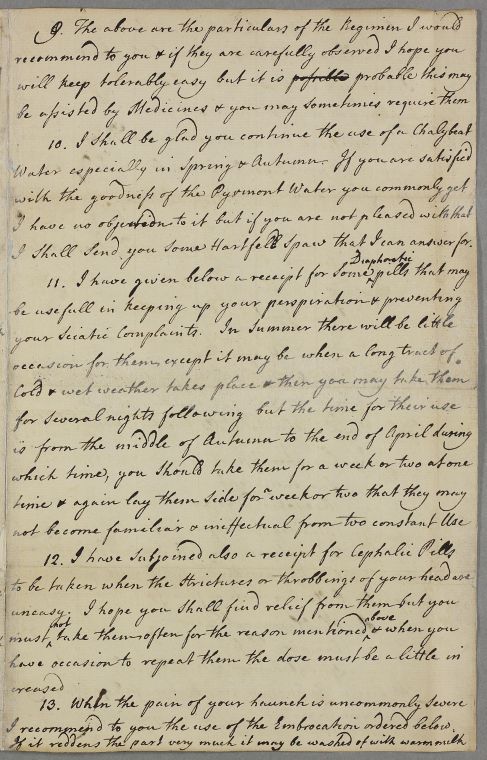 9. The above are the particulars of the Regimen I would
recommend to you & if they are carefully observed I hope you
will keep tolerably easy but it is possible probable this may
be assisted by Medicines & you may sometimes require them
10. I shall be glad you continue the use of a Chalybeat
Water especially in Spring & Autumn. If you are satisfied
with the goodness of the Pyrmont Water you commonly get
I have no objection to it but if you are not pleased with that
I Shall Send you some Hartfell Spaw that I can answer for.
11. I have given below a receipt for some Diaphoretic pills that may
be usefull in keeping up your perspiration & preventing
your Sciatic Complaints. In Summer there will be little
occasion for them, except it may be when a long tract of
Cold & wet weather takes place & then you may take them
for several nights following but the time for their use
is from the middle of Autumn to the end of April during
which time, you should take them for a week or two at one
time & again lay them side for a week or two that they may
not become familiar & ineffectual from two constant Use
12. I have Subjoined also a receipt for Cephalic Pills
to be taken when the Strictures or throbbings of your head are
uneasy. I hope you shall find relief from them but you
must not take them often for the reason mentioned above & when you
have occasion to repeat them the dose must be a little in
creased
13. When the pain of your haunch is uncommonly severe
I recommend to you the use of the Embrocation ordered below.
If it reddens the part very much it may be washed of with warm milk